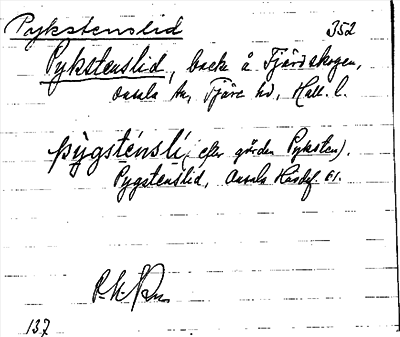 Pykstenslid 352
Pykstenslid, backe å Fjärdskogen,
Onsala sn, Fjäre hd, Hall. l.
pỳgsténslí, (efter gården Pyksten).
Pygstenslid, Onsala Hasdf. 61.
137